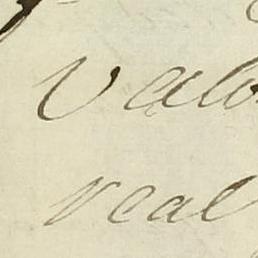 valo
real